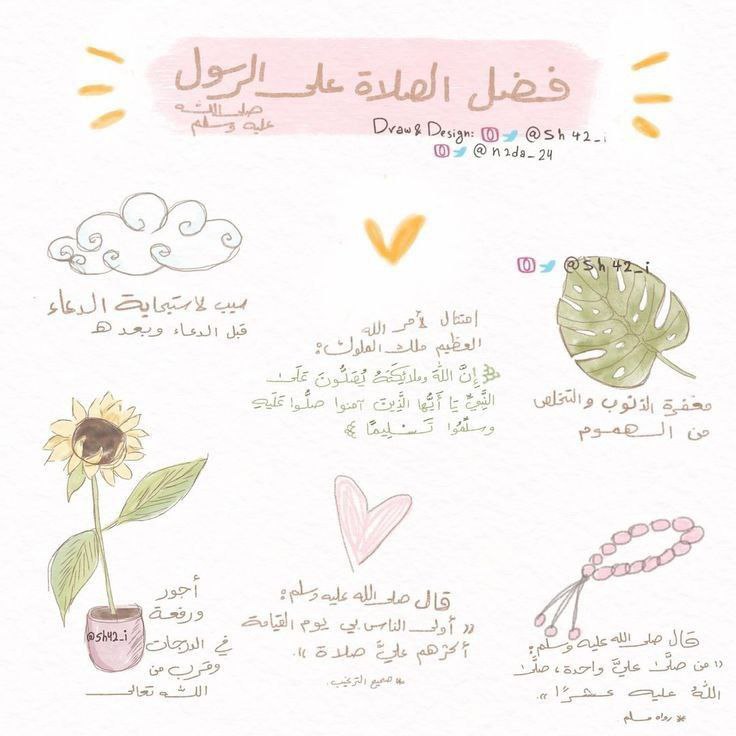 فضل الصلاة على الرسول
صلى الله
عليه وسلم
Draw & Design: @sh42_i
@n2da_24
@sh42_i
مغفرة الذنوب والتخلص
من الهموم
إمتثال لأمر الله
العظيم ملك الملوك:
﴿إِنَّ اللَّهَ وملائِكَتَهُ يُصَلُّونَ عَلَى
النَّبِيِّ يَا أَيُّهَا الَّذِينَ آمنوا صلُّوا عَلَيهِ
وسلِّمُوا تَسْلِيمًا﴾
سبب لاستجابة الدعاء
قبل الدعاء وبعده
قال صلى الله عليه وسلم:
"من صلَّى عليَّ واحدة، صلَّى
اللهُ عليه عشرًا".
*رواه مسلم.
قال صلى الله عليه وسلم:
"أولى الناس بي يوم القيامة
أكثرهم عليَّ صلاة".
*صحيح الترغيب.
أجور
ورفعة
في الدرجات
وقرب من
الله تعالى
@sh42_i